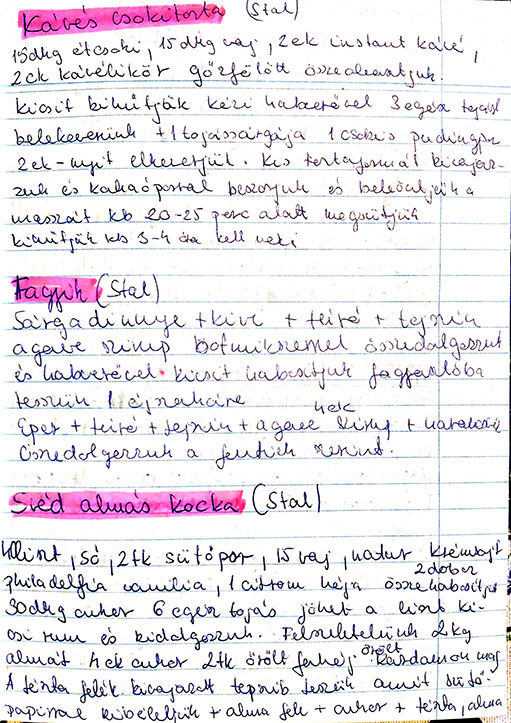 Kávés csokitorta (Stal)
15dkg étcsoki, 15dkg vaj, 2ek instant kávé,
2ek kávélikőr gőzfölött összeolvasztjuk.
kicsit kihűtjük kézi habverővel 3 egész tojást
belekeverünk + 1 tojássárgája 1 csokis pudingpor
2ek-nyit elkeverjük. Kis tortaformát kivajaz-
zuk és kakaóporral beszórjuk és beleöntjük a
masszát kb 20-25 perc alatt megsütjük
kihűtjük kb 3-4 óra kell neki
Fagyik (Stal)
Sárgadinnye + kivi + túró + tejszín
agave szirup botmixerrel összedolgozzuk
és habverővel kicsit habosítjuk fagyasztóba
tesszük 1 éjszakára
Eper + túró + tejszín + agave szirup +
Összedolgozzuk a fentiek szerint.
Svéd almás kocka (Stal)
liszt, só, 2tk sütőpor, 15 vaj, natur krémsajt
philadelfia vanilia, 1 citrom héja 2 doboz összehabosítjuk
30dkg cukor 6 egész tojás jöhet a liszt ki-
csi rum és kidolgozzuk. Felszeletelünk 2kg
almát 4ek cukor 2tk őrölt fahéj őrölt kardamom mag
A tészta felét kivajazott tepsibe tesszük amit sütő-
papírral kibéleljük + alma fele + cukor + tészta, alma